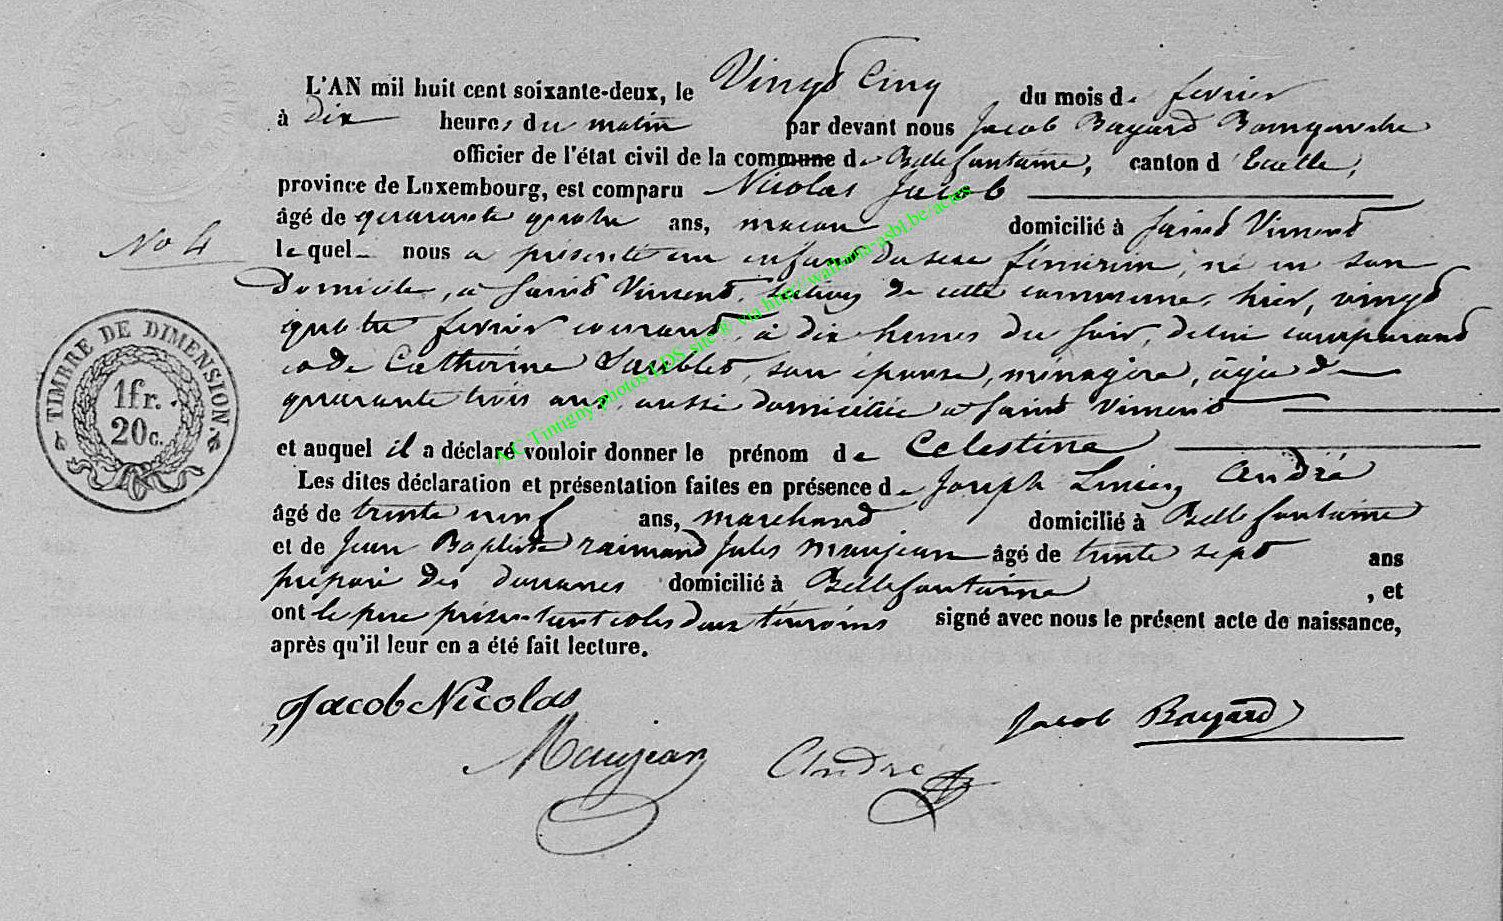 L'AN mil huit cent soixante-deux, le Vingt Cinq du mois de fevrier
à Dix heures du matin par devant nous Jacob Bayard Bourgmestre
officier de l'état civil de la commune de Bellefontaine, canton d'Etalle,
province de Luxembourg, est comparu Nicolas Jacob
âgé de quarante quatre ans, macon domicilié à Saint Vincent
No 4
lequel nous a présenté un enfant du sexe féminin, né en son
Domicile, à Saint Vincent, section de cette commune, hier, vingt
quatre fevrier courant, à dix heures du soir, de lui comparant
et de Catherine son épouse, ménagère, âgée de
quarante trois ans aussi domiciliée à Saint Vincent
et auquel il a déclaré vouloir donner le prénom de Celestine
Les dites déclaration et présentation faites en présence de Joseph André
âgé de trente neuf ans, marchand domicilié à Bellefontaine
et de Jean Baptiste raimond Jules Maujean âgé de trente sept ans
préposé des douanes domicilié à Bellefontaine, et
ont le père présentant et les deux témoins signé avec nous le présent acte de naissance,
après qu'il leur en a été fait lecture.
Jacob Nicolas
Jacob Bayard
Maujean André
TIMBRE DE DIMENSION.
1fr.
20c.
A.C Tintigny photos LDS site ® via http://wallonia-asbl.be/actes